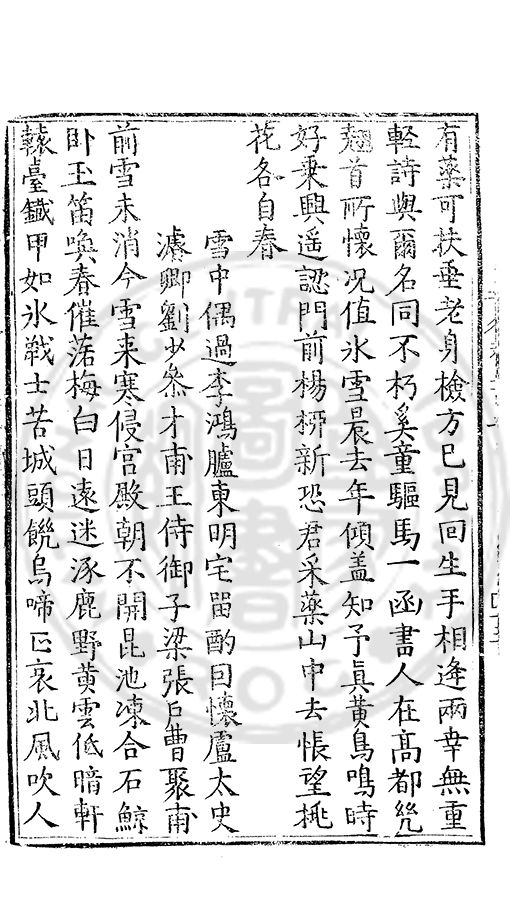 有藥可扶垂老身檢方已見回生手相逢兩幸無重
輕詩與爾名同不朽奚童驅馬一函書人在髙都㡬
翹首所懷况值氷雪晨去年傾盖知予眞黄鳥鳴時
好乗興遥認門前楊栁新恐君采藥山中去悵望桃
花名自春
雪中偶過李鴻臚東明宅留酌因懷盧太史
濬卿劉少叅才甫王侍御子梁張户曹聚甫
前雪未消今雪来寒侵宫殿朝不開昆池凍合石鯨
卧玉笛喚春催落梅白日遠迷涿鹿野黄雲低暗軒
轅臺鐵甲如氷戰士苦城頭饑烏啼正哀北風吹人